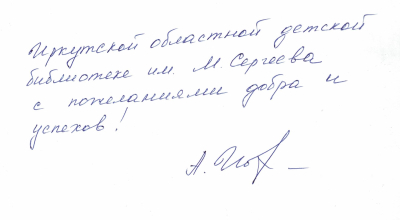 Иркутской областной детской
библиотеке им. М. Сергеева
с пожеланиями добра и
успехов!
А.